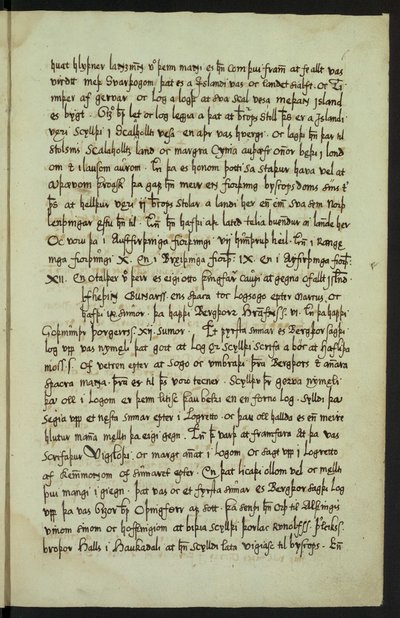 huat hlyþner lanzm̄n vꝍ þeim mani es h̄n com þui fram at fe allt vas
virdtt meþ Svardogom þat es a Islandi vas oc landet sialft oc Ti-
unþer af gervar oc Log a logþ at sva scal vesa meþan Island
es bygt. Gizꝍ b̄p let oc log leggia a þat at stoll b̄ps þess er a Islandi
veri scylldi i Scalahollti vesa en aþr vas hvergi. Oc lagþi h̄n þar til
stolsins Scalahollts land oc margra Cynia auþæfe onnor beþi i lond
om oc i lausom aurom. En þa es honom þotti sa staþur hava vel at
auþævom þroask þa gaf h̄n meir en fiorþung byscops doms sins til
þess at helldur veri ij b̄ps stolar a landi her en ein sva sem Norþ
lenþingar estu h̄n til. En h̄n hafþi aþr lated telia buendur a lande her
Oc voru þa i Austfirþinga fiorþungi vij hunđruþ heil. En i Range
inga fiorþungi X. en i Breiþfirþinga fiorþ. IX. En i Eyfirþinga fiorþ.
XII. En otalþer vꝍ þeir es eigi otto þingfarar caupi at gegna of allt Island
Ulfheþin Gunnars sons ens spaca toc Logsogo epter Marcus. oc
hafþi ix sumor. þa hafþi Bergþorr Hrafnss. vi. En þa hafþi
Goþmundr þorgeirss. XII. sumor. Et fyrsta sumar es Bergþor sagþi
log vpp vas nymeli þat gort at Log or scylldi scrifa a boc at Hafliþa
moss.s. of vetron epter at Sogo oc vmbraþi þeira Bergþors oc annara
spacra manna. þeira er til þess voro tecner. Scylldu þr gerva nymeli
þau oll i Logom er þeim litisc þau betri en en forno log. Sylldi þau
segia vpp et nesta sumar epter i Logretto. oc þau oll hallda es en meire
hlutur manna melti þa eigi gegn. En þ varþ at framfara at þa vas
Scrifaþur Vigsloþi. oc margt annat i Logom oc sagt vpp i Logretto
af Kennemonnom of sumaret epter. En þat licaþi ollom vel oc melti
þui mangi i giegn. þat vas oc et fyrsta sumar es Bergþor sagþi Log
vpp þa vas Gizor b̄p Oþingførr af sott. þa sendi h̄n orþ til Allþingis
vinom sinom oc hofþingiom at biþia scylldi þorlac Runolfss. þleikss.
broþor Halls i Haukadali at h̄n scylldi lata vigiasc til byscops. En